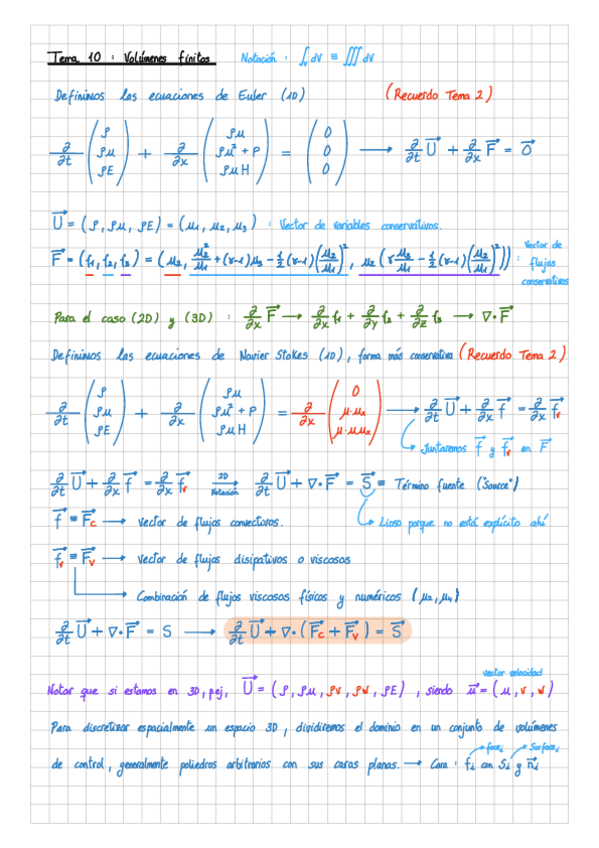 Tema 10 : Volúmenes finitos    Notación : ∫ᵥ dV ≡ ∭ dV
Definimos las ecuaciones de Euler (1D)    (Recuerdo Tema 2)
∂/∂t (ρ, ρu, ρE) + ∂/∂x (ρu, ρu² + P, ρuH) = (0, 0, 0) → ∂/∂t U⃗ + ∂/∂x F⃗ = 0⃗
U⃗ = (ρ, ρu, ρE) = (u₁, u₂, u₃) : Vector de variables conservativas.
F⃗ = (f₁, f₂, f₃) = (u₂, u₂²/u₁ + (γ-1)u₃ - 1/2 (γ-1)(u₂/u₁)², u₂(γu₃/u₁ - 1/2 (γ-1)(u₂/u₁)²)) : Vector de flujos conservativas
Para el caso (2D) y (3D) : ∂/∂x F⃗ → ∂/∂x f₁ + ∂/∂y f₂ + ∂/∂z f₃ → ∇·F⃗
Definimos las ecuaciones de Navier Stokes (1D), forma más conservativa (Recuerdo Tema 2)
∂/∂t (ρ, ρu, ρE) + ∂/∂x (ρu, ρu² + P, ρuH) = ∂/∂x (0, μ·uₓ, μ·uuₓ) → ∂/∂t U⃗ + ∂/∂x f⃗ = ∂/∂x f⃗ᵥ
Juntaremos f⃗ y f⃗ᵥ en F⃗
∂/∂t U⃗ + ∂/∂x f⃗ = ∂/∂x f⃗ᵥ → 2D Notación ∂/∂t U⃗ + ∇·F⃗ = S⃗ ≡ Término fuente ("Source")
f⃗ ≡ F⃗c → Vector de flujos convectivos.    Lioso porque no está explícito ahí
f⃗ᵥ ≡ F⃗v → Vector de flujos disipativos o viscosos
Combinación de flujos viscosos físicos y numéricos {μ₂, μ₄}
∂/∂t U⃗ + ∇·F⃗ = S → ∂/∂t U⃗ + ∇·(F⃗c + F⃗v) = S⃗
vector velocidad
Notar que si estamos en 3D, p.ej, U⃗ = (ρ, ρu, ρv, ρw, ρE), siendo u⃗ = (u, v, w)
Para discretizar espacialmente un espacio 3D, dividiremos el dominio en un conjunto de volúmenes
faceᵢ    Surfaceᵢ
de control, generalmente poliedros arbitrarios con sus caras planas. → Cara : fᵢ con Sᵢ y n⃗ᵢ